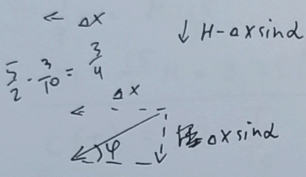 ← Δx
↓ H-Δxsinα
5/2 · 3/10 = 3/4
← Δx
φ
↓ Δxsinα